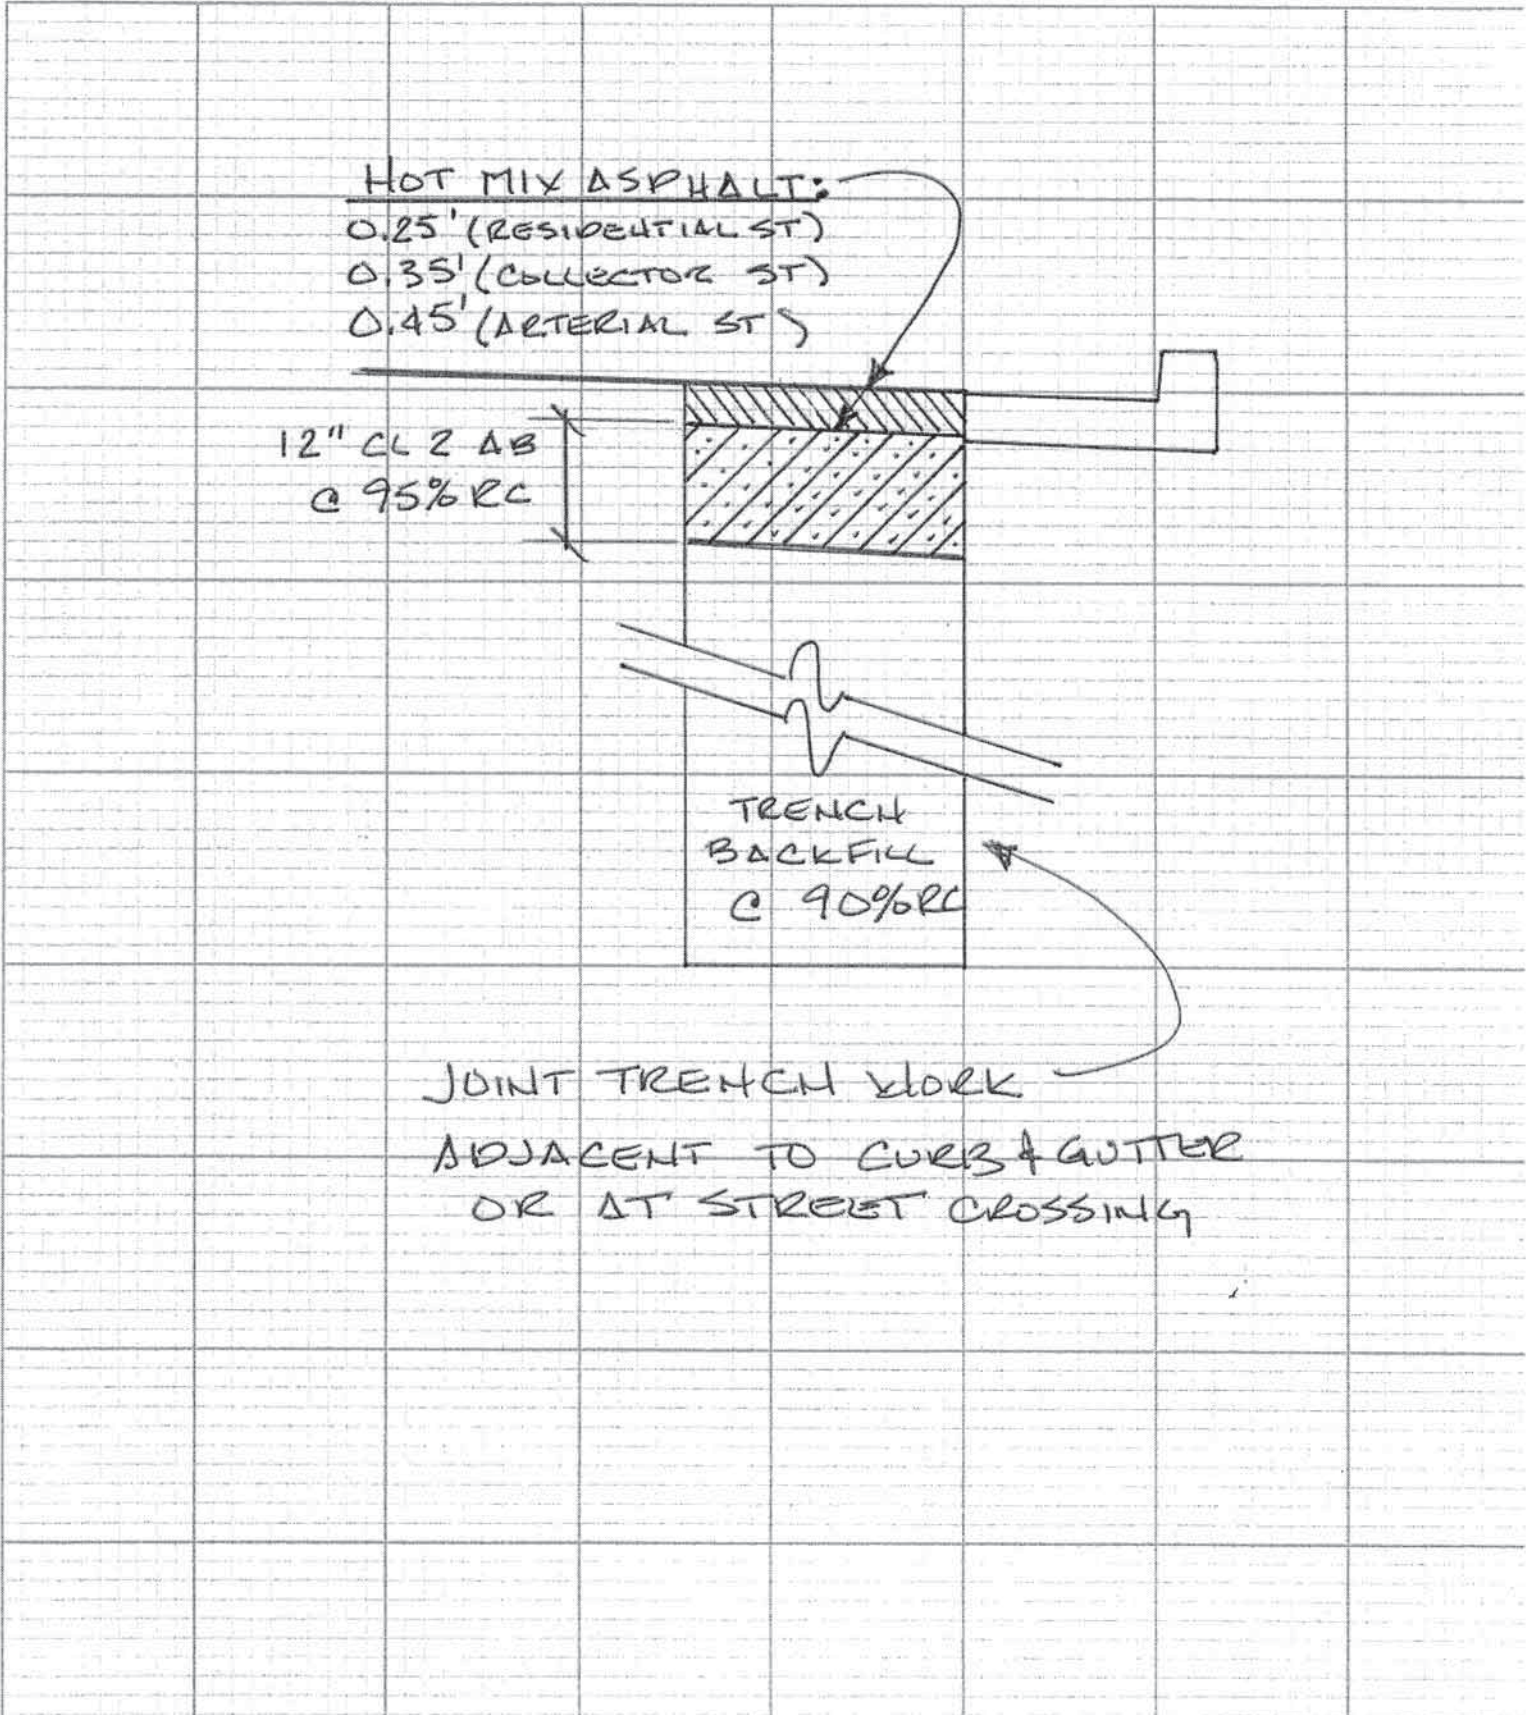 HOT MIX ASPHALT:
0.25' (RESIDENTIAL ST)
0.35' (COLLECTOR ST)
0.45' (ARTERIAL ST)
12" CL 2 AB
@ 95% RC
TRENCH
BACKFILL
@ 90% RC
JOINT TRENCH WORK
ADJACENT TO CURB & GUTTER
OR AT STREET CROSSING